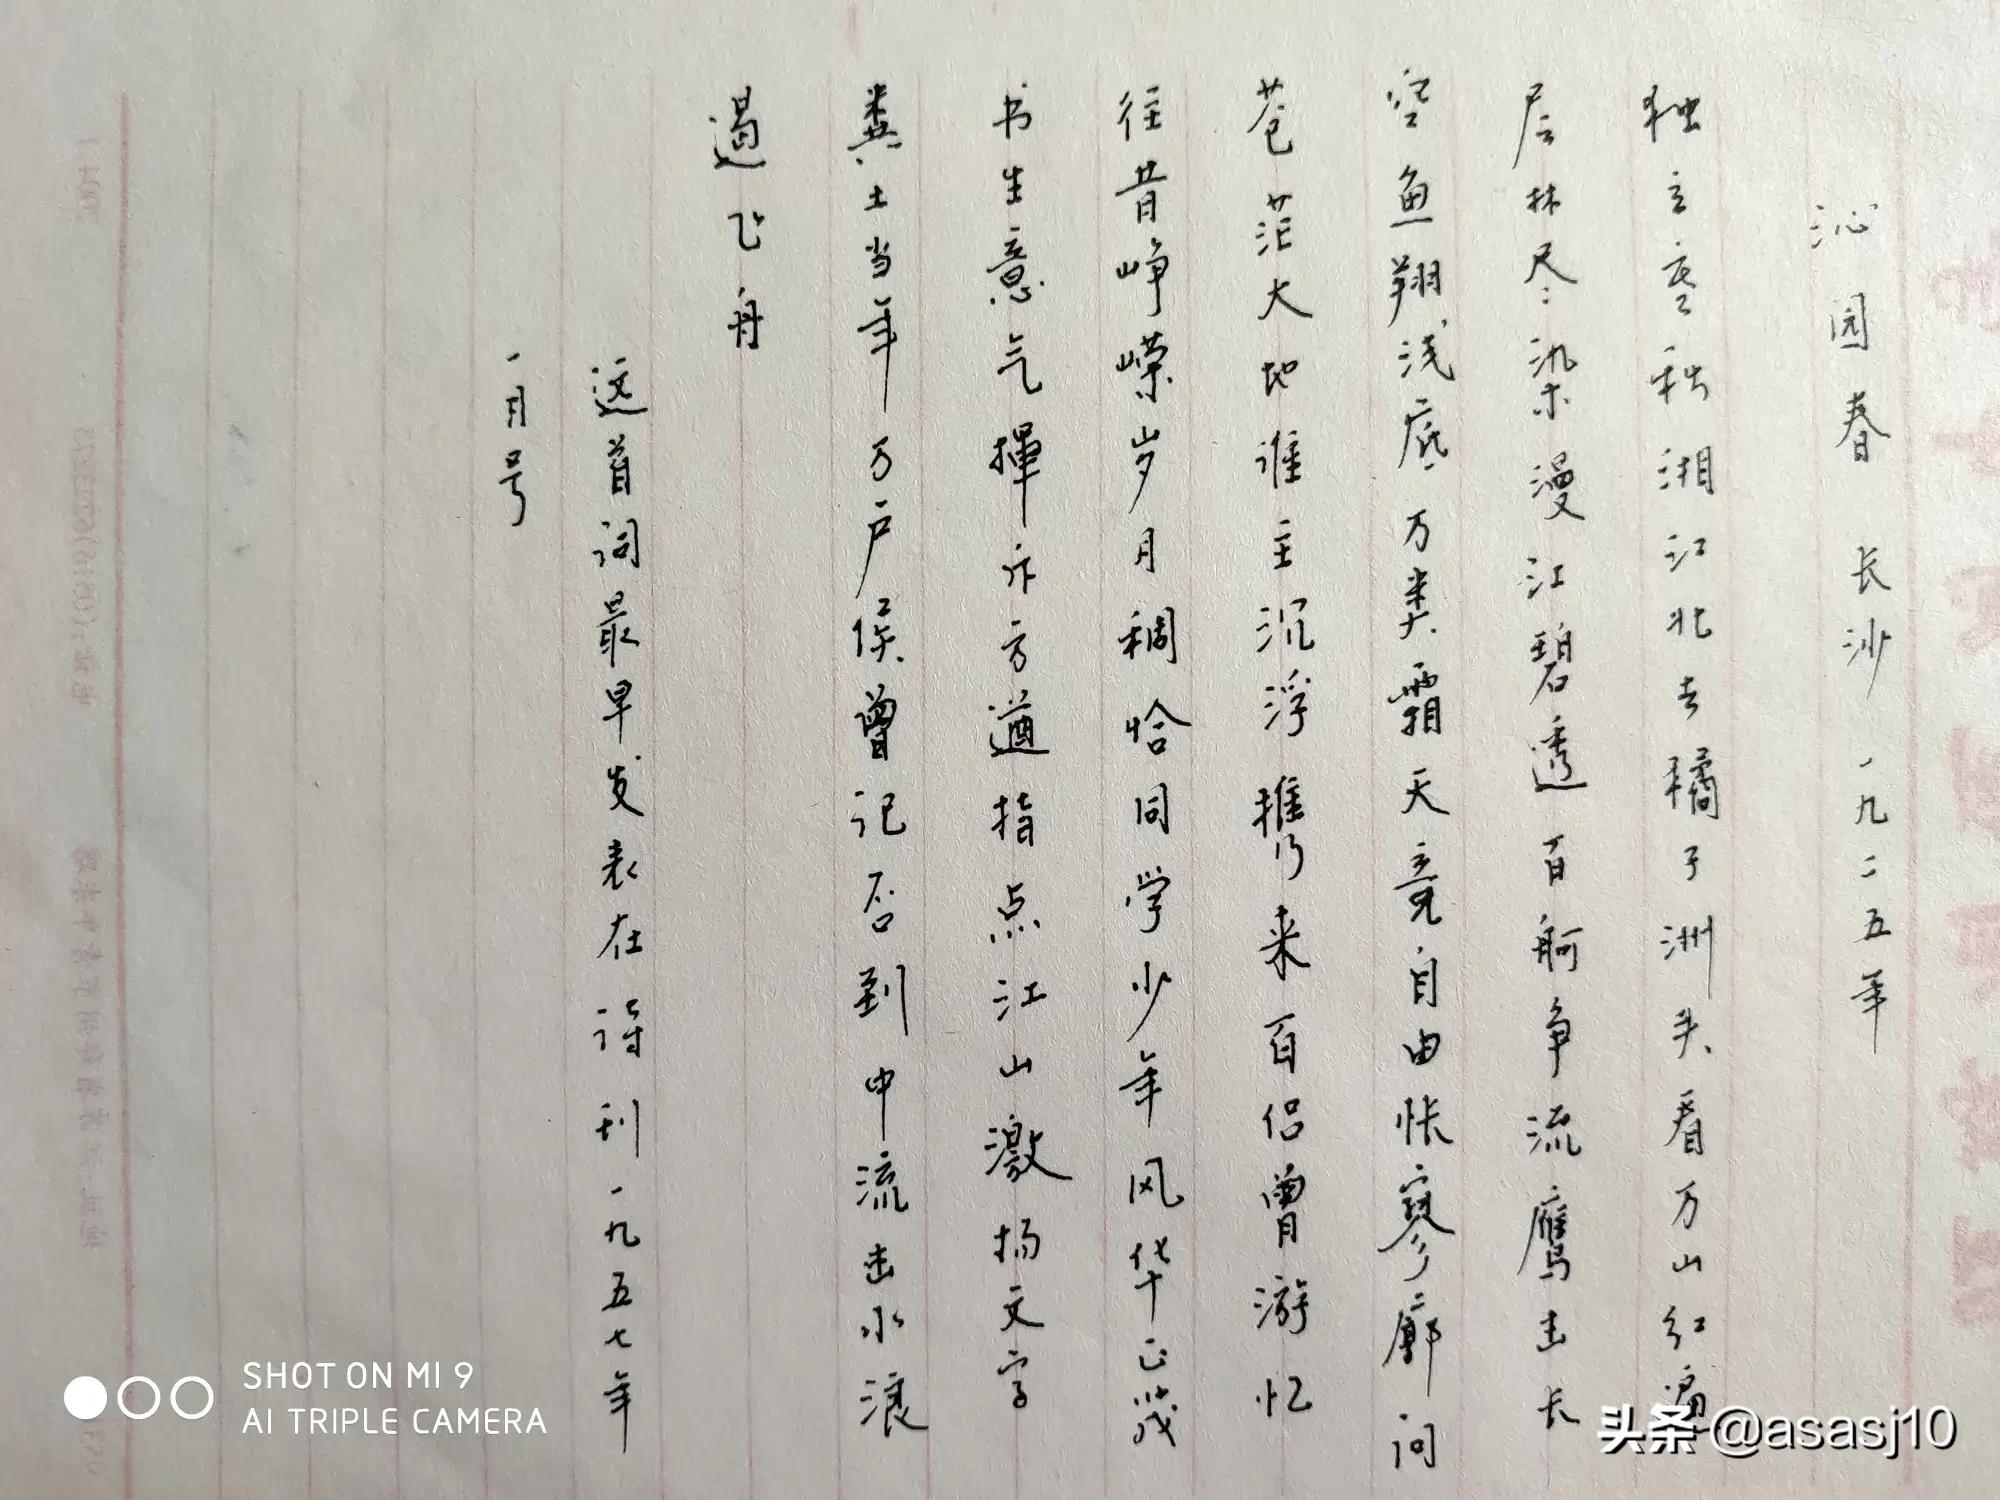 沁园春 长沙 一九二五年
独立寒秋湘江北去橘子洲头看万山红遍
层林尽染漫江碧透百舸争流鹰击长
空鱼翔浅底万类霜天竞自由怅寥廓问
苍茫大地谁主沉浮携来百侣曾游忆
往昔峥嵘岁月稠恰同学少年风华正茂
书生意气揮斥方遒指点江山激扬文字
粪土当年万户侯曾记否到中流击水浪
遏飞舟
这首词最早发表在诗刊一九五七年
一月号
SHOT ON MI 9
AI TRIPLE CAMERA
头条 @asasj10